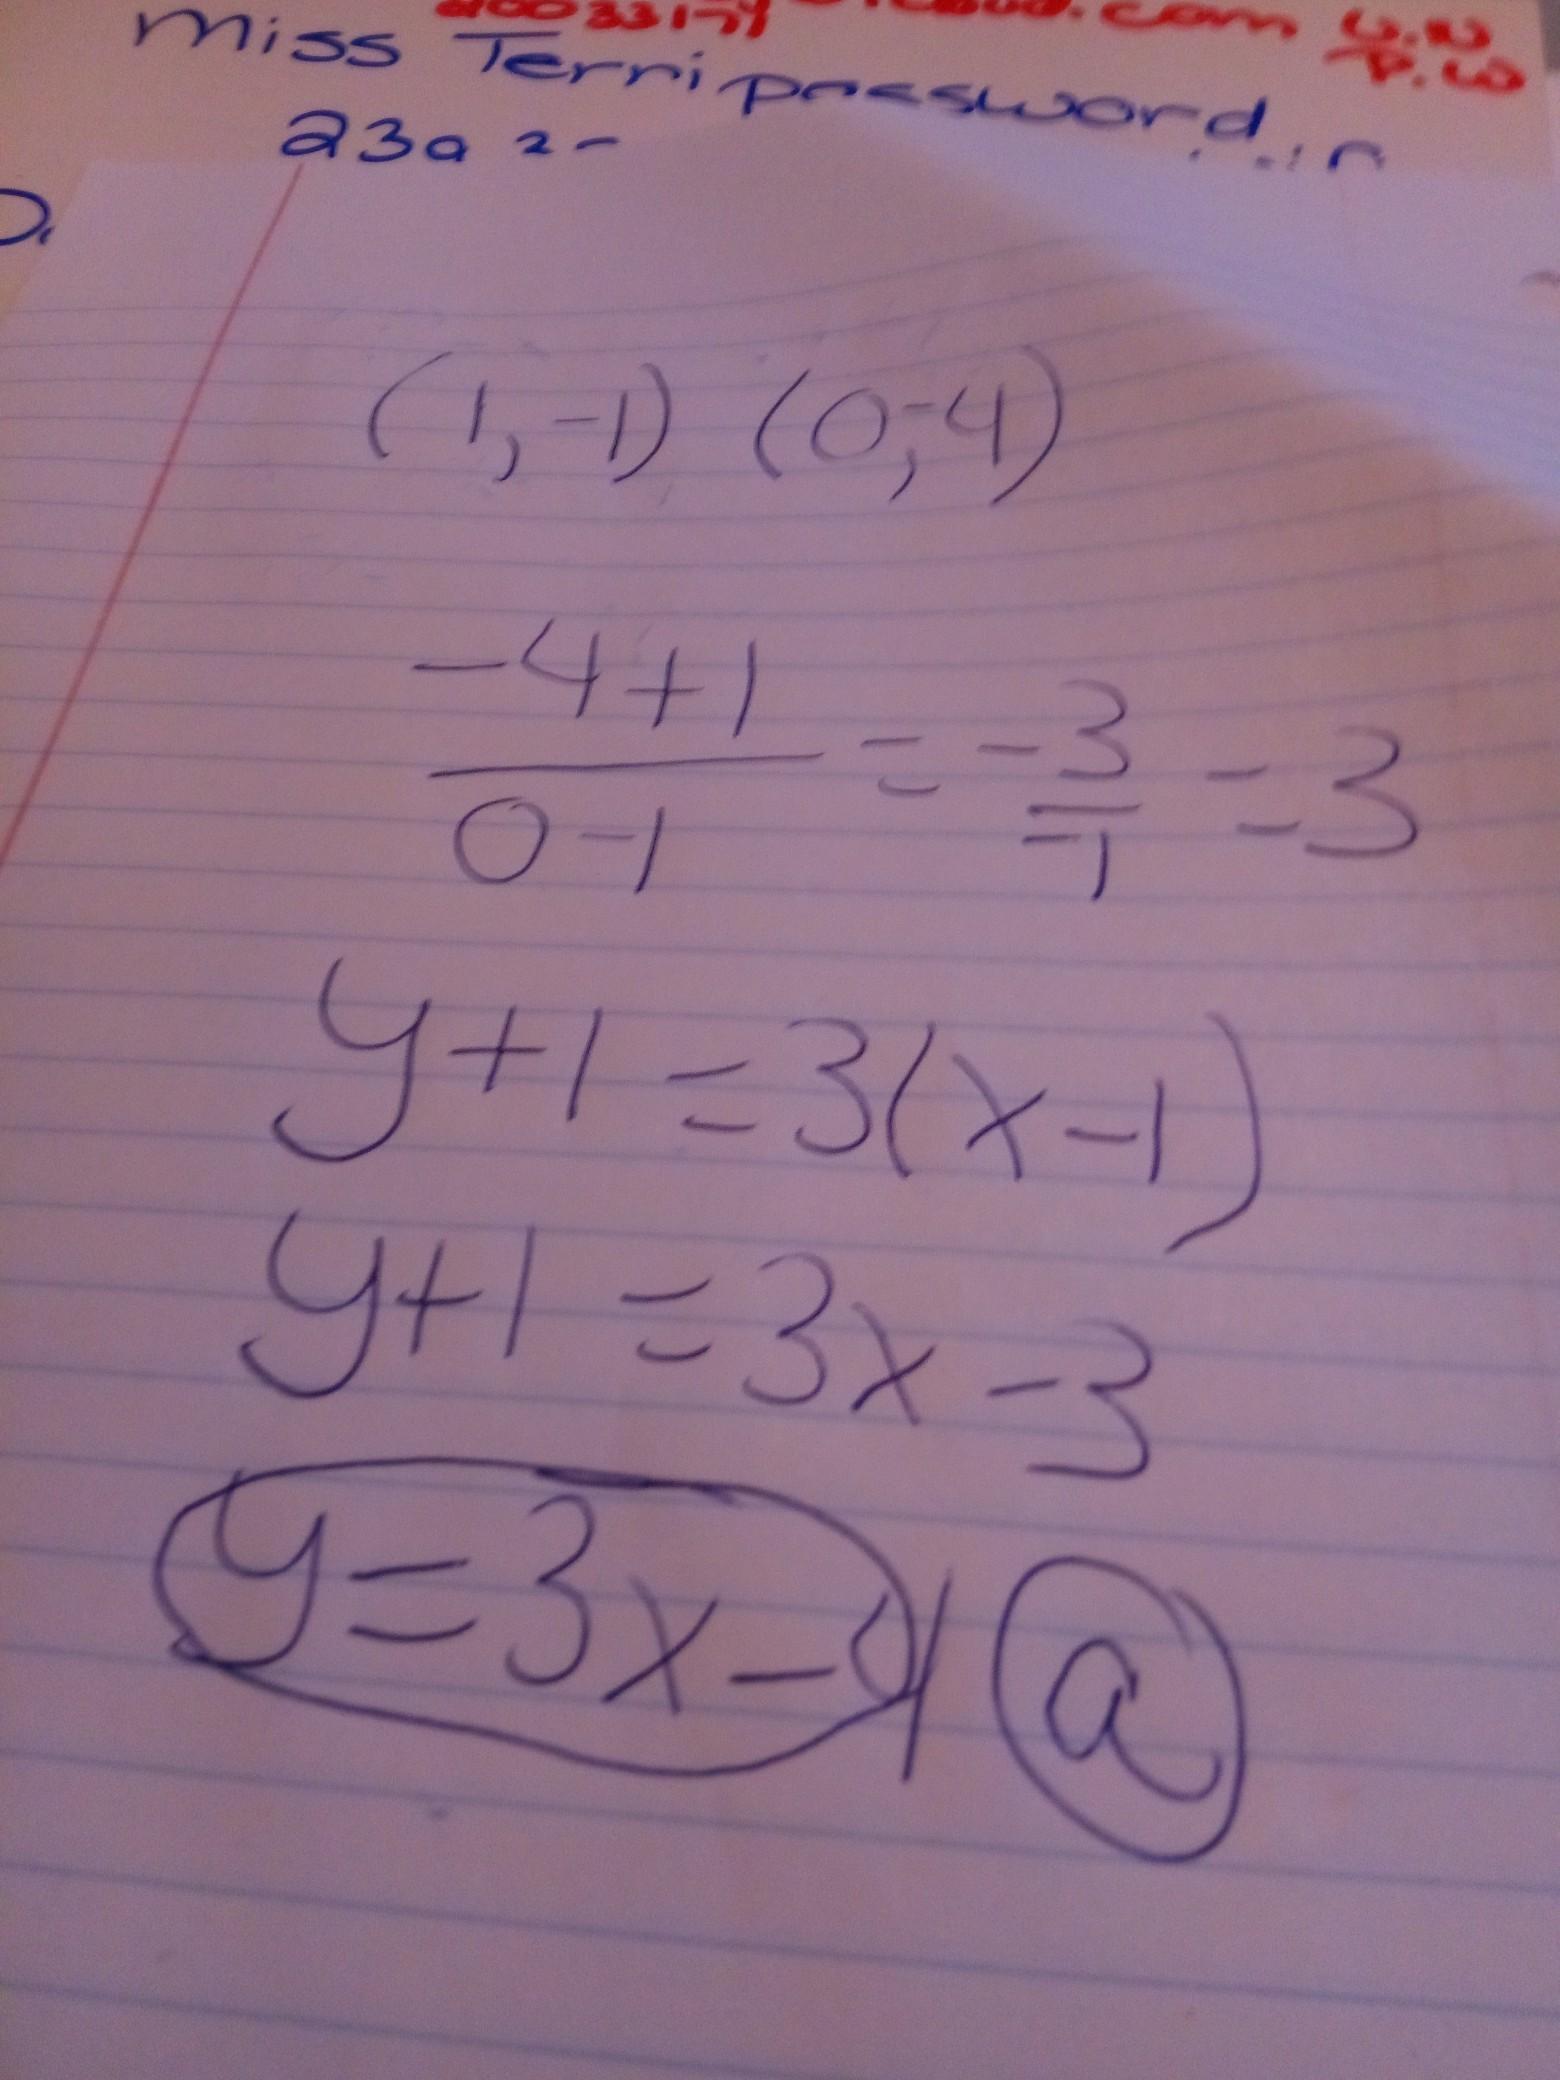 .com U.N
P.W
Miss Terri password
(1,-1) (0,-4)
-4+1 / 0-1 = -3/-1 = 3
y+1 = 3(x-1)
y+1 = 3x-3
y=3x-4 a